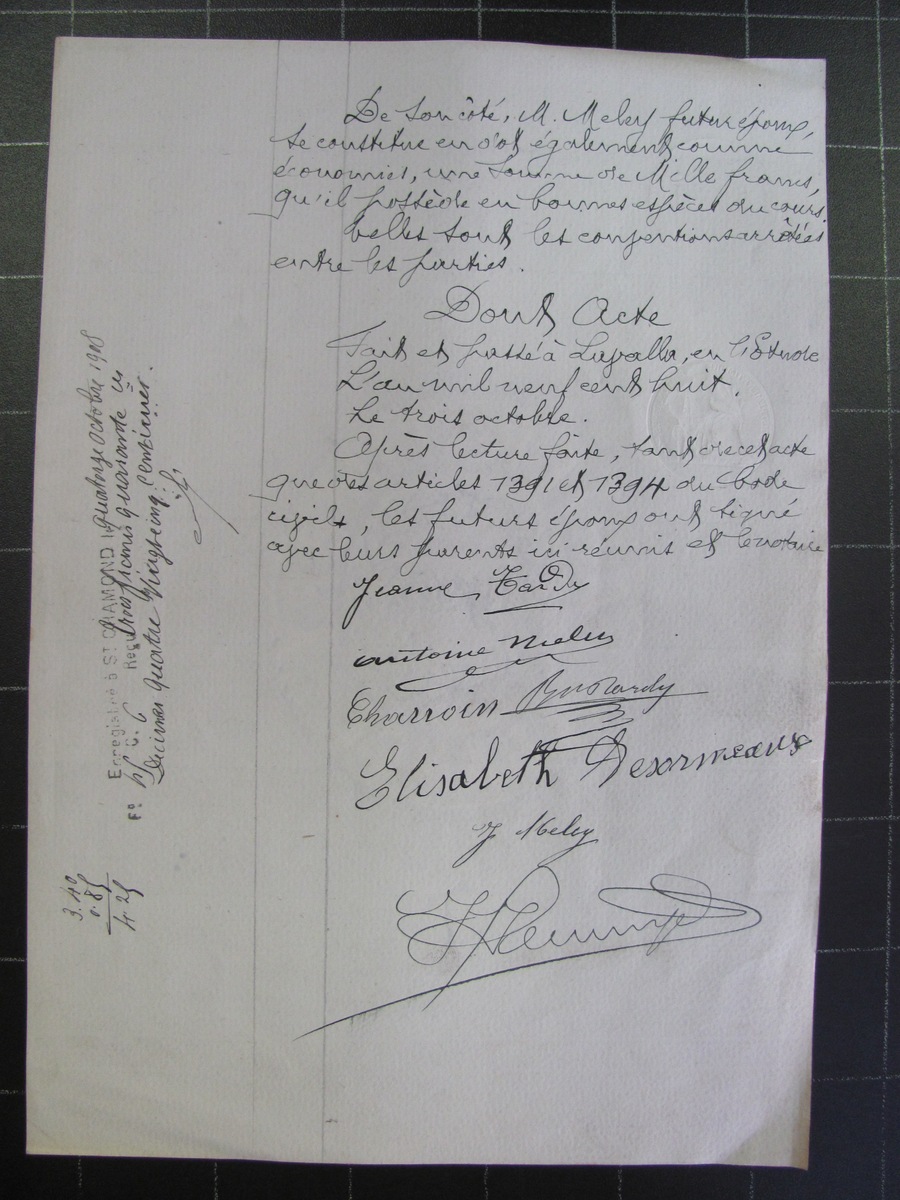 De son côté, M. Meley futur époux,
se constitue en dot également comme
économies, une somme de Mille francs,
qu'il possède en bonnes espèces du cours.
Telles sont les conventions arrêtées
entre les parties.
Dont Acte
Fait et passé à Lavalla, en l'Etude
L'an mil neuf cent huit.
Le trois octobre.
Après lecture faite, tant de cet acte
que des articles 1391 et 1394 du Code
civil, les futurs époux ont signé
avec leurs parents ici réunis et le notaire
Jeanne Tardy
antoine Meley
Charroin Tardy
Elisabeth Desormeaux
J Meley
Enregistré à St CHAMOND le quatorze octobre 1908
Fo C. 6 Reçu trois francs quarante cs
Décimes quatre vingt cinq centimes.
3.40
0.85
4 25